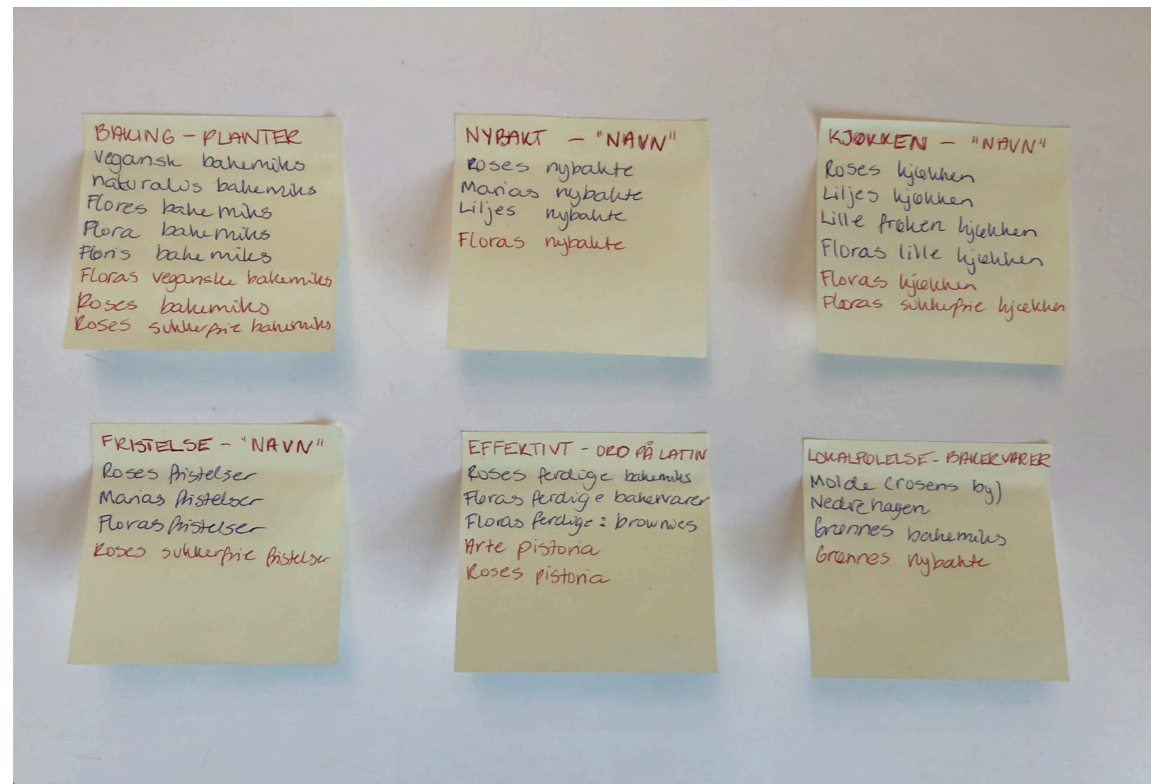 BAKING - PLANTER
Vegansk bakemiks
naturalos bakemiks
Flores bakemiks
Flora bakemiks
Floris bakemiks
Floras veganske bakemiks
Roses bakemiks
Roses sukkerfrie bakemiks
NYBAKT - "NAVN"
Roses nybakte
Marias nybakte
Liljes nybakte
Floras nybakte
KJØKKEN - "NAVN"
Roses kjøkken
Liljes kjøkken
Lille frøken kjøkken
Floras lille kjøkken
Floras kjøkken
Floras sukkerfrie kjøkken
FRISTELSE - "NAVN"
Roses fristelser
Marias fristelser
Floras fristelser
Roses sukkerfrie fristelser
EFFEKTIVT - ORD PÅ LATIN
Roses ferdige bakemiks
Floras ferdige bakervarer
Floras ferdige: brownies
Arte pistoria
Roses pistoria
LOKALFØLELSE - BAKERVARER
Molde (rosens by)
Nedre hagen
Grønnes bakemiks
Grønnes nybakte